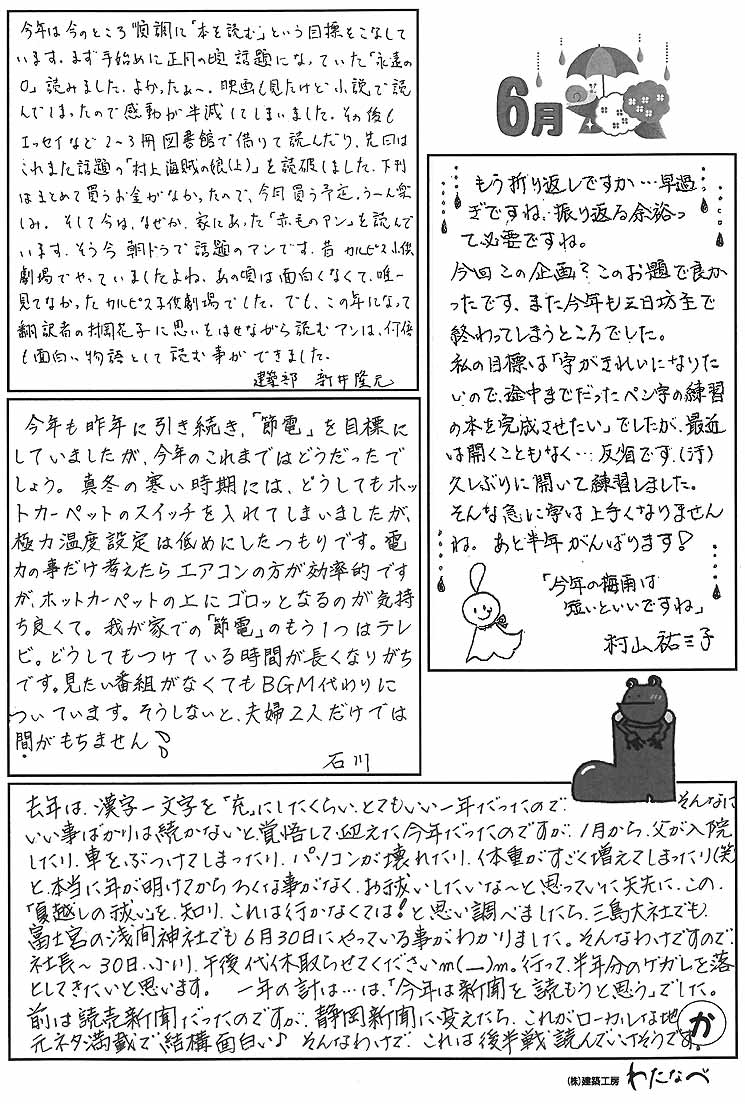 今年は今のところ順調に「本を読む」という目標をこなして
います。まず手始めに正月の頃話題になっていた「永遠の
0」読みました。よかったぁ〜。映画も見たけど小説で読
んでしまったので感動が半減してしまいました。その後も
エッセイなど2〜3冊図書館で借りて読んだり、先日は
これまた話題の「村上海賊の娘(上)」を読破しました。下刊
はまとめて買うお金がなかったので、今月買う予定。うーん楽
しみ。そして今は、なぜか、家にあった「赤毛のアン」を読んで
います。そう今朝ドラで話題のアンです。昔カルピス小供
劇場でやっていましたよね。あの頃は面白くなくて、唯一
見てなかったカルピス子供劇場でした。でも、この年になって
翻訳者の村岡花子に思いをはせながら読むアンは、何倍
も面白い物語として読む事ができました。
建築部 新井隆元
6月
もう折り返しですか…早過
ぎですね。振り返る余裕っ
て必要ですね。
今回この企画?このお題で良か
ったです。また今年も三日坊主で
終わってしまうところでした。
私の目標は「字がきれいになりた
いので、途中までだったペン字の練習
の本を完成させたい」でしたが、最近
は開くこともなく…反省です。(汗)
久しぶりに開いて練習しました。
そんな急に字は上手くなりません
ね。あと半年がんばります!
「今年の梅雨は
短いといいですね」
村山祐三子
今年も昨年に引き続き、「節電」を目標に
していましたが、今年のこれまではどうだったで
しょう。真冬の寒い時期には、どうしてもホッ
トカーペットのスイッチを入れてしまいましたが、
極力温度設定は低めにしたつもりです。電
力の事だけ考えたらエアコンの方が効率的です
が、ホットカーペットの上にゴロッとなるのが気持
ち良くて。我が家での「節電」のもう1つはテレ
ビ。どうしてもつけている時間が長くなりがち
です。見たい番組がなくてもBGM代わりに
ついています。そうしないと、夫婦2人だけでは
間がもちません♪
石川
去年は、漢字一文字を「充」にしたくらい、とてもいい一年だったので、そんなに
いい事ばかりは続かないと覚悟して迎えた今年だったのですが、1月から、父が入院
したり、車をぶつけてしまったり、パソコンが壊れたり、体重がすごく増えてしまったり(笑)
と、本当に年が明けてからろくな事がなく、お祓いしたいな〜と思っていた矢先に、この
「夏越しの祓い」を知り、これは行かなくては!と思い調べましたら、三島大社でも、
富士宮の浅間神社でも6月30日にやっている事がわかりました。そんなわけですので、
社長〜30日、午後代休取らせてくださいm(__)m。行って、半年分のケガレを落
としてきたいと思います。 一年の計は…は、「今年は新聞を読もうと思う」でした。
前は読売新聞だったのですが、静岡新聞に変えたら、これがローカルな地
元ネタ満載で、結構面白い♪ そんなわけで、これは後半戦読んでいけそうです。
か
(株)建築工房 わたなべ